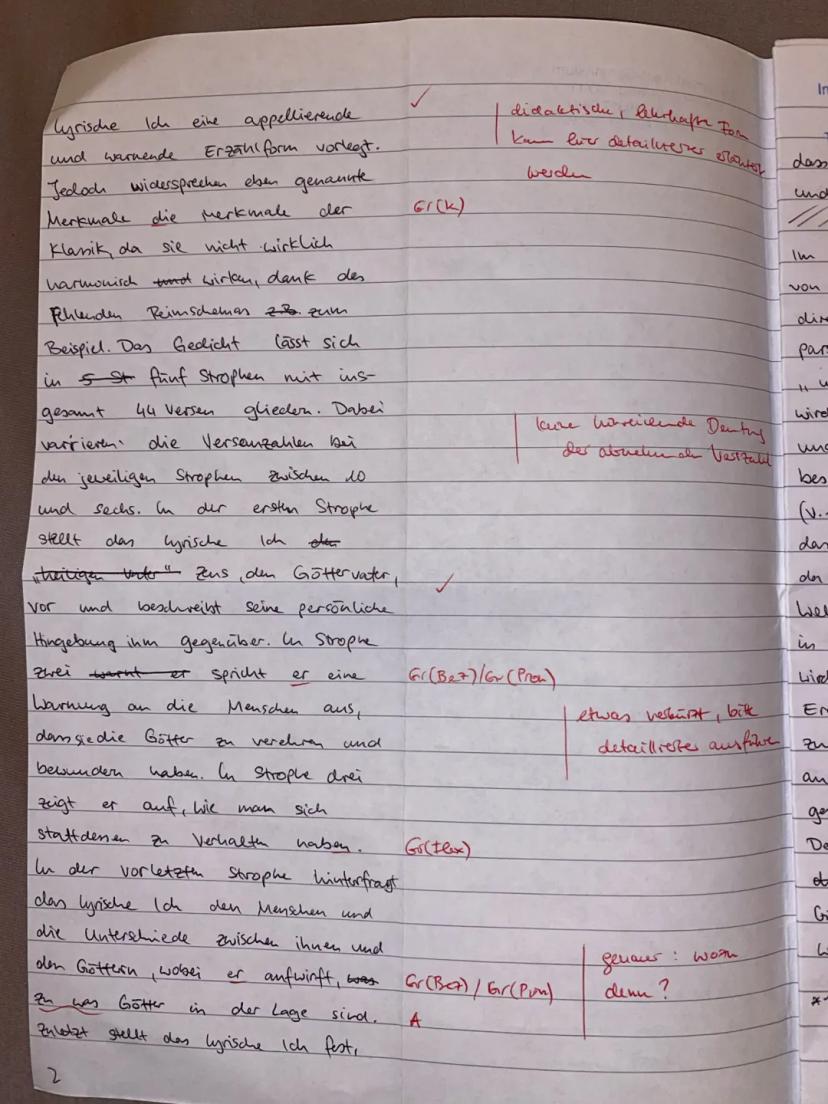 lyrische Ich eine appellierende ✓
didaktische, lehrhafte Form
und warnende Erzählform vorlegt.
kann hier detaillierter erläutert
werden
Jedoch widersprechen eben genannte
Merkmale die Merkmale der
Gr(K)
Klassik, da sie nicht wirklich
harmonisch wirken, dank des
fehlenden Reimschemas z.B. zum
Beispiel. Das Gedicht lässt sich
in 5 St fünf Strophen mit ins-
gesamt 44 Versen gliedern. Dabei
keine hinreichende Deutung
der abnehmenden Verszahl
varrieren die Versanzahlen bei
den jeweiligen Strophen zwischen 10
und sechs. In der ersten Strophe
stellt das lyrische Ich den
"heiligen Vater" Zeus, den Göttervater, ✓
vor und beschreibt seine persönliche
Hingebung ihm gegenüber. In Strophe
zwei warnt er spricht er eine
Gr(Bez)/Gr(Pron)
Warnung an die Menschen aus,
etwas verkürzt, bitte
detaillierter ausführen
dass sie die Götter zu verehren und
bewundern haben. In Strophe drei
zeigt er auf, wie man sich
stattdessen zu verhalten haben.
Gr(Flex)
In der vorletzten Strophe hinterfragt
das lyrische Ich den Menschen und
die Unterschiede zwischen ihnen und
den Göttern, wobei er aufwirft, was
Gr(Bez) / Gr(Pron)
genauer: worin
denn?
zu was Götter in der Lage sind.
A
Zuletzt stellt das lyrische Ich fest,
2
In
dass
und
Im
von
dir
par
wird
und
bes
(v.
das
der
in
zu
an
ge
De